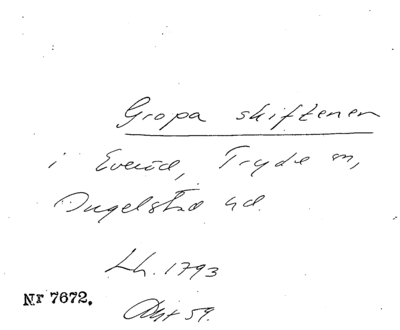 Gropa skiftenen
i Everöd, Tryde sn,
Ingelstad hd.
Lh. 1793
Nr 7672.
Akt 59.